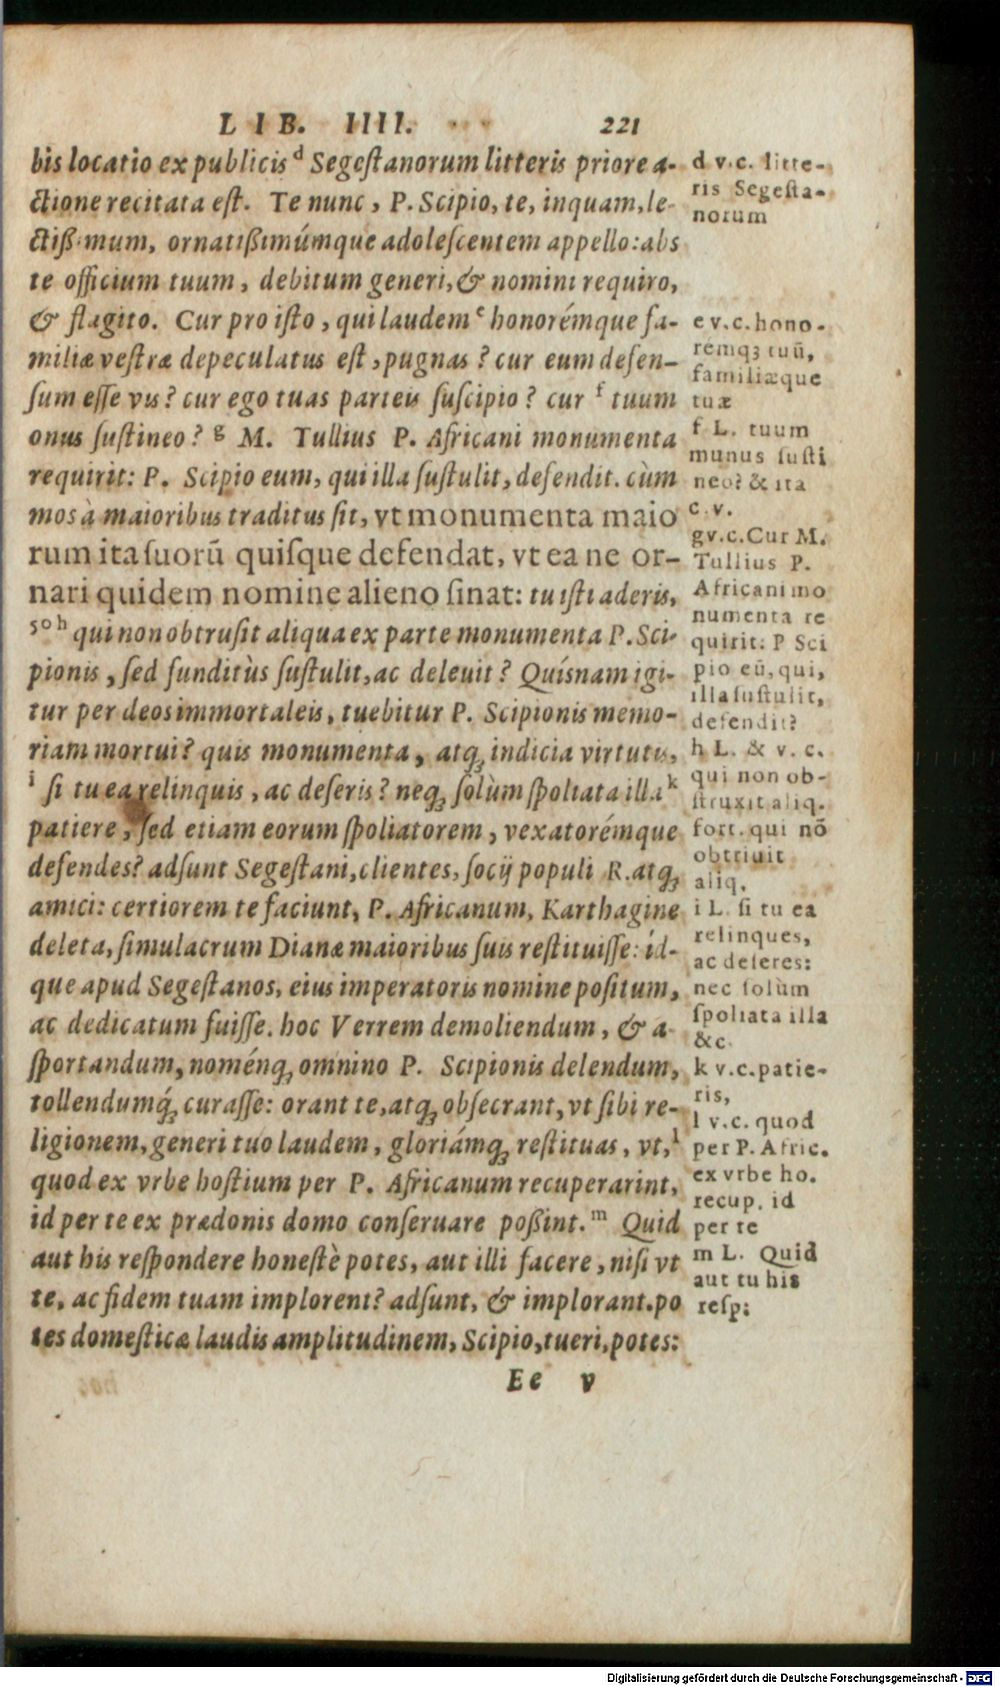 LIB. IIII. 221
bis locatio ex publicis d Segestanorum litteris priore a-
ctione recitata est. Te nunc, P. Scipio, te, inquam, le-
ctißimum, ornatißimúmque adolescentem appello: abs
te officium tuum, debitum generi, & nomini requiro,
& flagito. Cur pro isto, qui laudem e honorémque fa-
miliæ vestræ depeculatus est, pugnas? cur eum defen-
sum esse vis? cur ego tuas parteis suscipio? cur f tuum
onus sustineo? g M. Tullius P. Africani monumenta
requirit: P. Scipio eum, qui illa sustulit, defendit. cùm
mos à maioribus traditus sit, vt monumenta maio
rum ita suorũ quisque defendat, vt ea ne or-
nari quidem nomine alieno sinat: tu isti aderis,
50 h qui non obtrusit aliqua ex parte monumenta P. Sci-
pionis, sed funditùs sustulit, ac deleuit? Quísnam igi-
tur per deos immortaleis, tuebitur P. Scipionis memo-
riam mortui? quis monumenta, atq; indicia virtutis,
i si tu ea relinquis, ac deseris? neq; solùm spoliata illa k
patiere, sed etiam eorum spoliatorem, vexatorémque
defendes? adsunt Segestani, clientes, socij populi R. atq;
amici: certiorem te faciunt, P. Africanum, Karthagine
deleta, simulacrum Dianæ maioribus suis restituisse: íd-
que apud Segestanos, eius imperatoris nomine positum,
ac dedicatum fuisse. hoc Verrem demoliendum, & a-
sportandum, noménq; omnino P. Scipionis delendum,
tollendumq́; curasse: orant te, atq; obsecrant, vt sibi re-
ligionem, generi tuo laudem, gloriámq; restituas, vt, l
quod ex vrbe hostium per P. Africanum recuperarint,
id per te ex prædonis domo conseruare poßint. m Quid
aut his respondere honestè potes, aut illi facere, nisi vt
te, ac fidem tuam implorent? adsunt, & implorant. po
tes domesticæ laudis amplitudinem, Scipio, tueri, potes:
Ee v
d v.c. litte-
ris Segesta-
norum
e v.c. hono-
rémq; tuũ,
familiæque
tuæ
f L. tuum
munus susti
neo? & ita
c. v.
g v.c. Cur M.
Tullius P.
Africani mo
numenta re
quirit: P Sci
pio eũ, qui,
illa sustulit,
defendit?
h L. & v. c.
qui non ob-
struxit aliq.
fort. qui nõ
obtriuit
aliq.
i L. si tu ea
relinques,
ac deseres:
nec solùm
spoliata illa
&c.
k v.c. patie-
ris,
l v.c. quod
per P. Afric.
ex vrbe ho.
recup. id
per te
m L. Quid
aut tu his
resp:
Digitalisierung gefördert durch die Deutsche Forschungsgemeinschaft - DFG